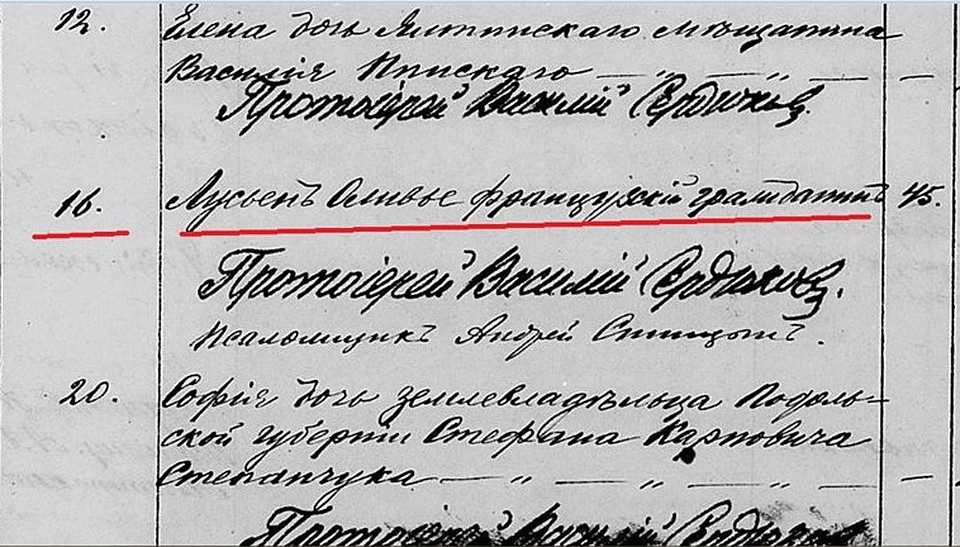 12. Елена дочь Ялтинскаго мѣщанина
Василія
Протоіерей Василій Сердюковъ.
16. Лусьенъ Оливье французскій гражданинъ 45.
Протоіерей Василій Сердюковъ.
Псаломщикъ Андрей Синицынъ.
20. Софія дочь землевладѣльца Подоль-
ской губерніи Стефана Карповича
Степанчука
Протоіерей Василій Сердюков